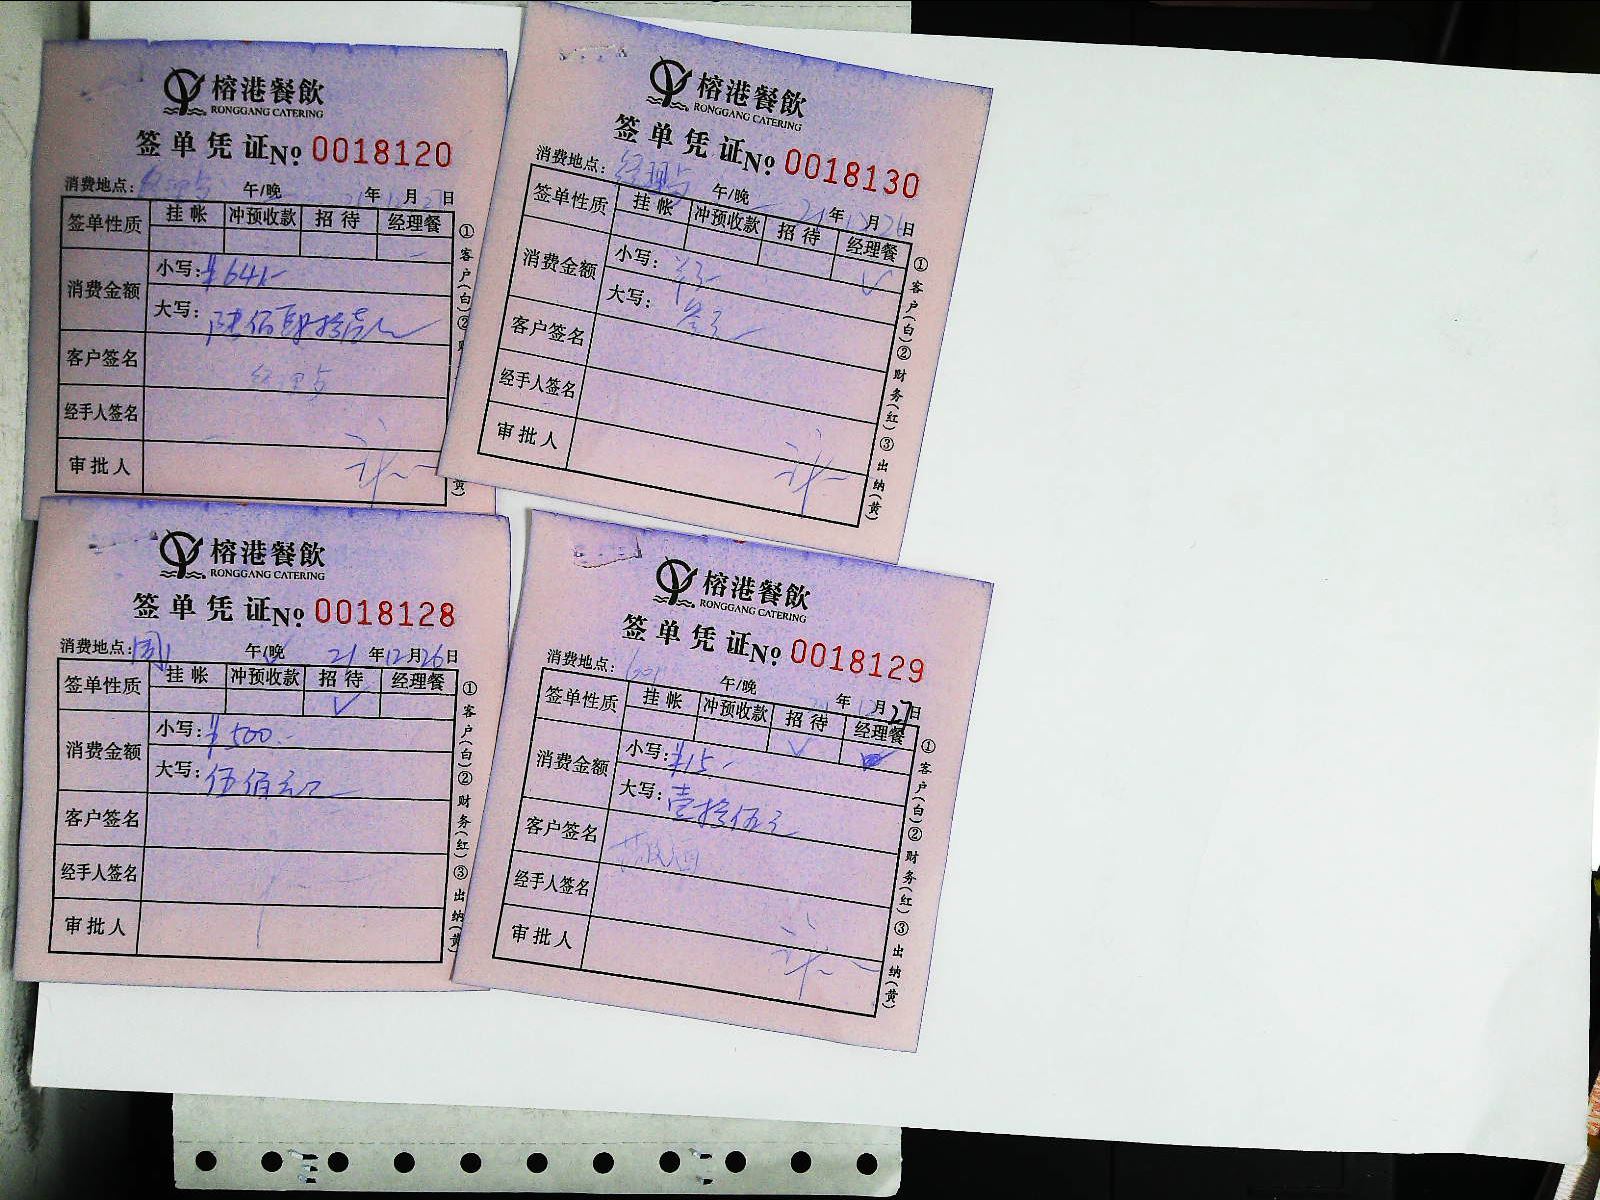 榕港餐飲
RONGGANG CATERING
签单凭证 No 0018120
消费地点: 经理点 午/晚 21年12月27日
签单性质 挂帐 冲预收款 招待 经理餐
消费金额 小写: ¥641-
大写: 陆佰肆拾壹元
客户签名 经理点
经手人签名
审批人
①客户(白)②财
(黄)
榕港餐飲
RONGGANG CATERING
签单凭证 No 0018130
消费地点: 经理点 午/晚 21年12月26日
签单性质 挂帐 冲预收款 招待 经理餐 ✓
消费金额 小写:
大写:
客户签名
经手人签名
审批人
①客户(白)②财务(红)③出纳(黄)
榕港餐飲
RONGGANG CATERING
签单凭证 No 0018128
消费地点: 午/晚 ✓ 21年12月26日
签单性质 挂帐 冲预收款 招待 ✓ 经理餐
消费金额 小写: ¥500.-
大写: 伍佰元
客户签名
经手人签名
审批人
①客户(白)②财务(红)③出纳(黄)
榕港餐飲
RONGGANG CATERING
签单凭证 No 0018129
消费地点: 午/晚 年 月27日
签单性质 挂帐 冲预收款 招待 ✓ 经理餐
消费金额 小写: ¥15-
大写: 壹拾伍元
客户签名
经手人签名
审批人
①客户(白)②财务(红)③出纳(黄)